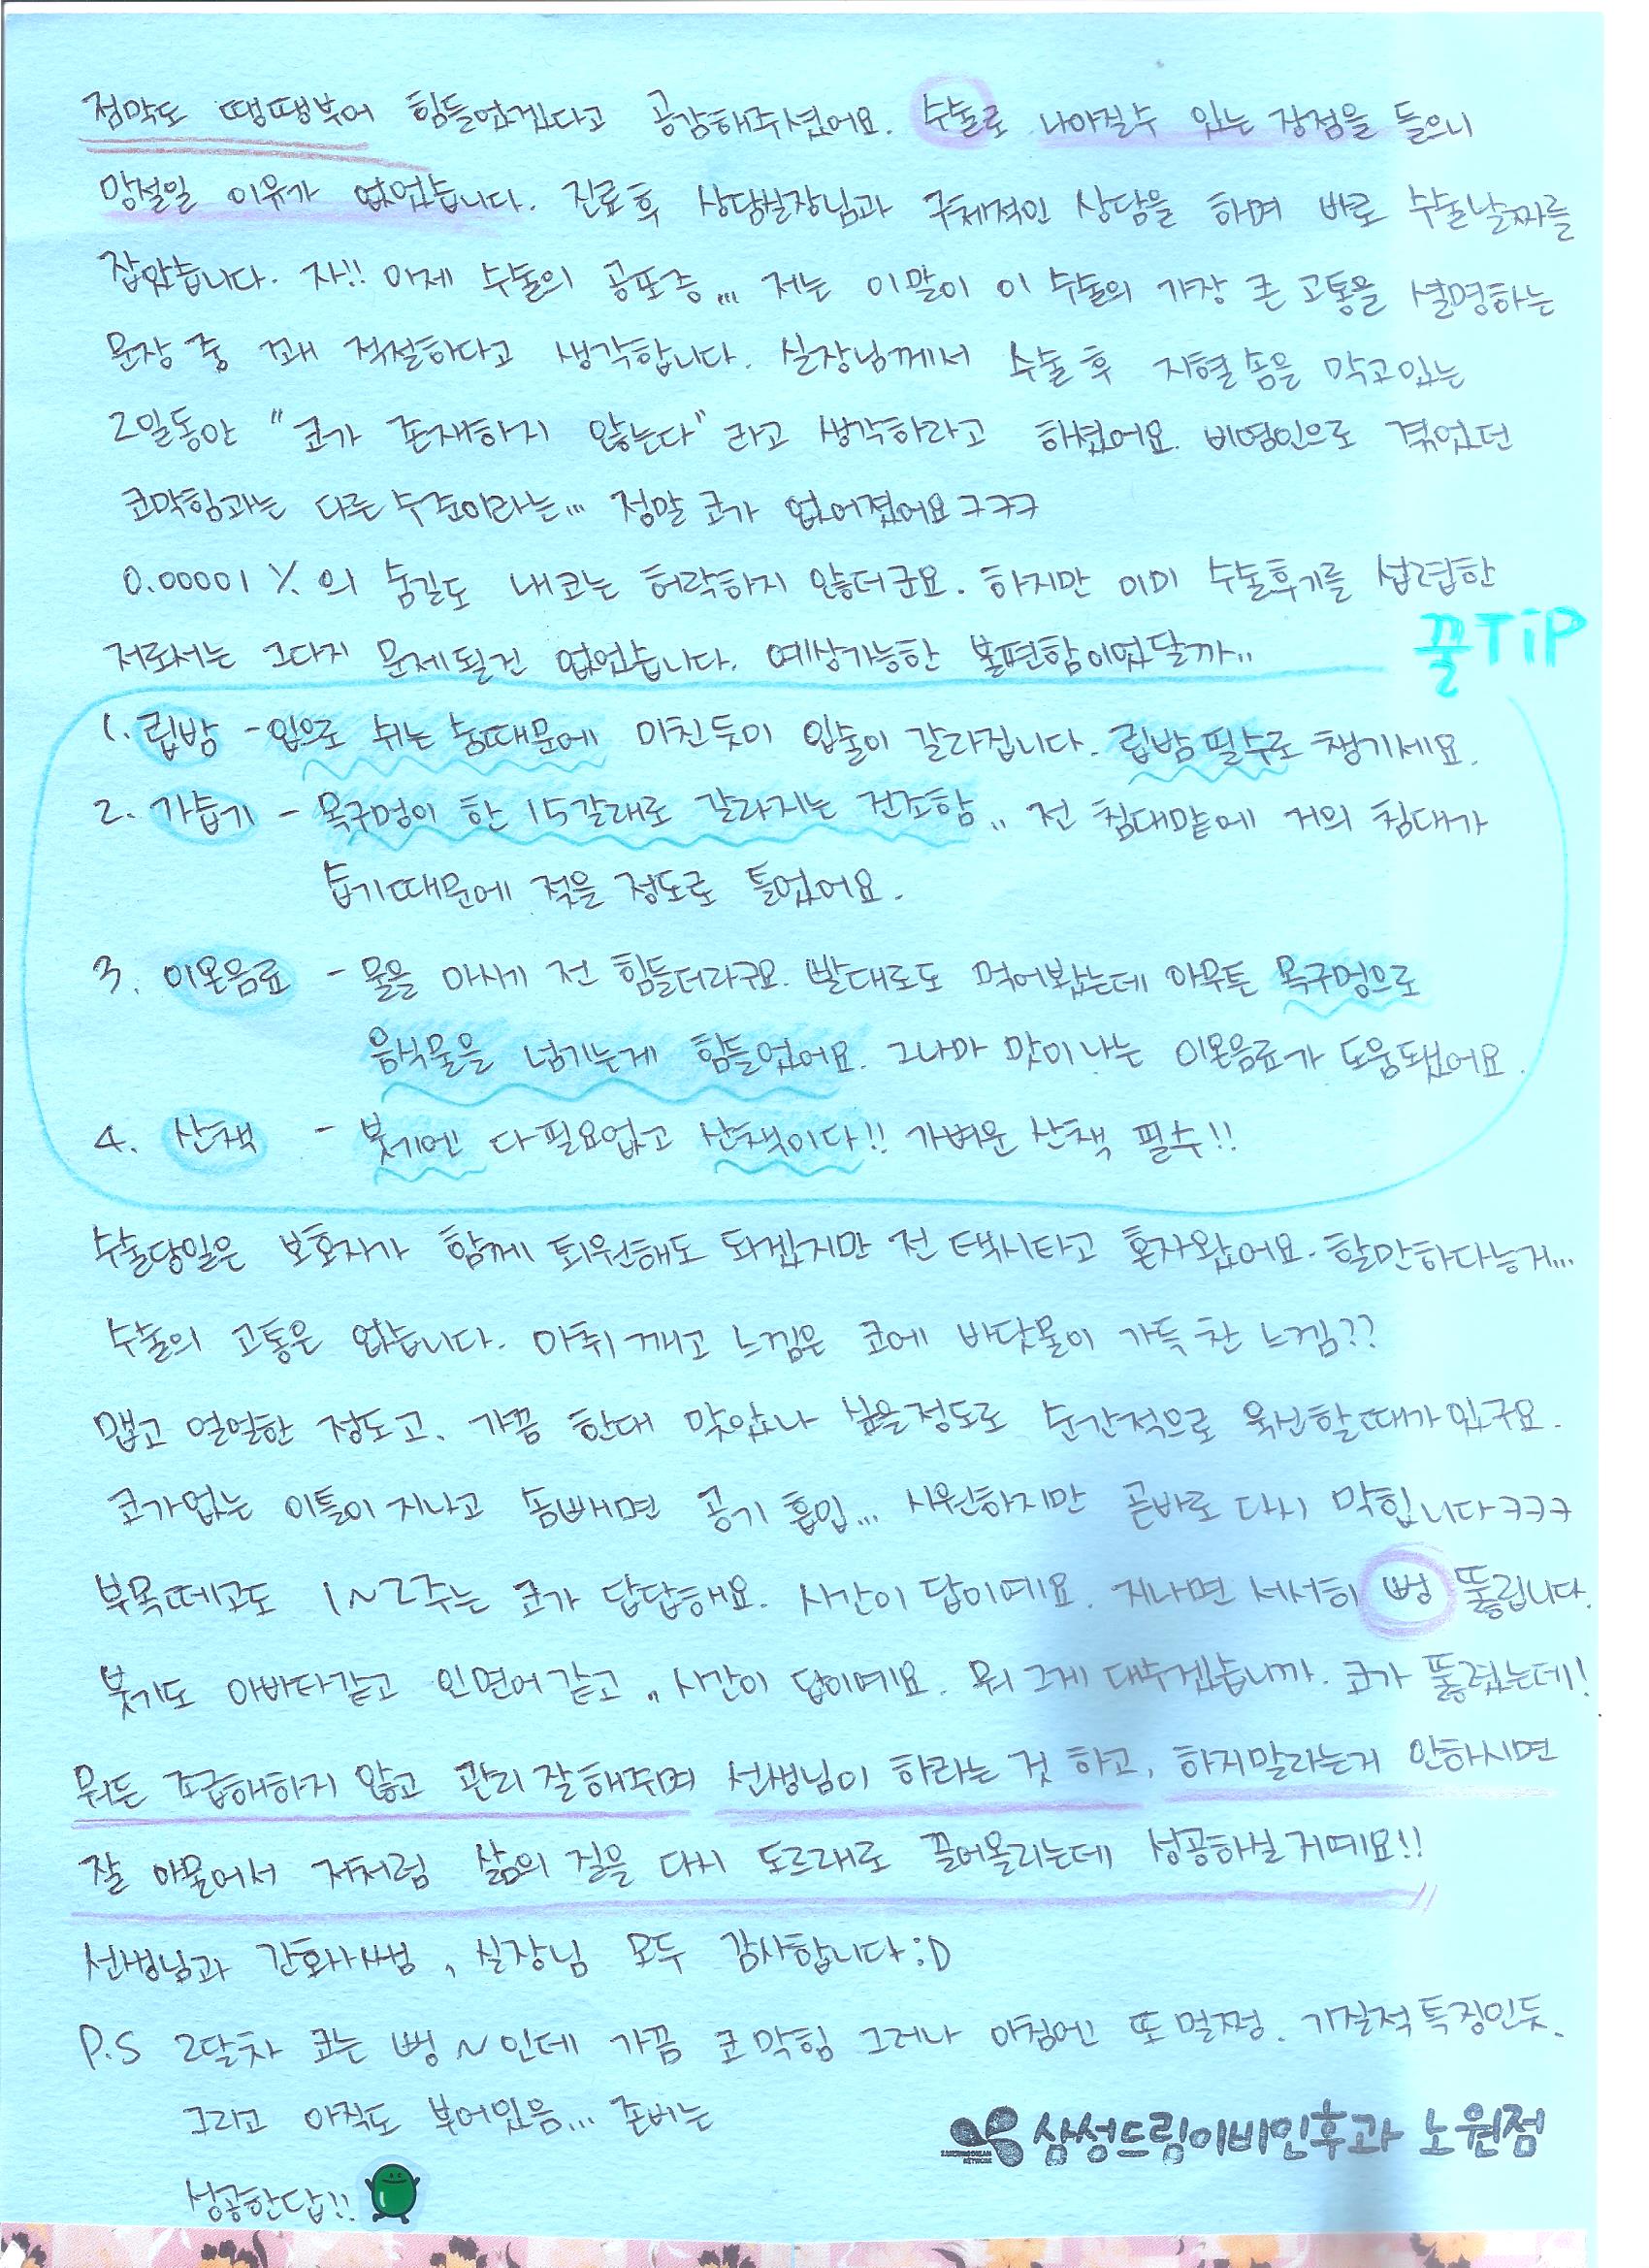 점막도 땡땡부어 힘들었겠다고 공감해주셨어요. 수술로 나아질수 있는 장점을 들으니
망설일 이유가 없었습니다. 진료후 상담실장님과 구체적인 상담을 하며 바로 수술날짜를
잡았습니다. 자!! 이제 수술의 공포증... 저는 이말이 이 수술의 가장 큰 고통을 설명하는
문장 중 꽤 적절하다고 생각합니다. 실장님께서 수술 후 지혈솜을 막고있는
2일동안 "코가 존재하지 않는다"라고 생각하라고 하셨어요. 비염인으로 겪었던
코막힘과는 다른 수준이라는... 정말 코가 없어졌어요ㅋㅋㅋ
0.00001%의 숨길도 내코는 허락하지 않더군요. 하지만 이미 수술후기를 섭렵한
저로서는 그다지 문제될건 없었습니다. 예상가능한 불편함이었달까..
꿀TiP
1. 립밤 - 입으로 쉬는 숨때문에 미친듯이 입술이 갈라집니다. 립밤 필수로 챙기세요.
2. 가습기 - 목구멍이 한 15갈래로 갈라지는 건조함.. 전 침대맡에 거의 침대가
습기때문에 젖을 정도로 틀었어요.
3. 이온음료 - 물을 마시게 전 힘들더라구요. 빨대로도 먹어봤는데 아무튼 목구멍으로
음식물을 넘기는게 힘들었어요. 그나마 맛이나는 이온음료가 도움됐어요.
4. 산책 - 붓기엔 다필요없고 산책이다!! 가벼운 산책 필수!!
수술당일은 보호자가 함께 퇴원해도 되겠지만 전 택시타고 혼자왔어요. 할만하다능거...
수술의 고통은 없습니다. 마취깨고 느낌은 코에 바닷물이 가득 찬 느낌??
맵고 얼얼한 정도고, 가끔 한대 맞았나 싶을정도로 순간적으로 욱신할때가있구요.
코가없는 이틀이 지나고 솜빼면 공기 흡입... 시원하지만 곧바로 다시 막힙니다ㅋㅋㅋ
부목떼고도 1~2주는 코가 답답해요. 시간이 답이예요. 지나면 서서히 뻥 뚫립니다.
붓기도 아바타같고 인면어같고.. 시간이 답이예요. 뭐 그게 대수겠습니까. 코가 뚫렸는데!
뭐든 조급해하지 않고 관리 잘해주며 선생님이 하라는 것 하고, 하지말라는거 안하시면
잘 아물어서 저처럼 삶의 질을 다시 도르래로 끌어올리는데 성공하실거예요!!
선생님과 간호사쌤, 실장님 모두 감사합니다 :D
P.S 2달차 코는 뻥~인데 가끔 코막힘 그러나 아침엔 또 멀쩡. 기질적 특징인듯.
그리고 아직도 부어있음... 존버는
성공한답!!
삼성드림이비인후과 노원점